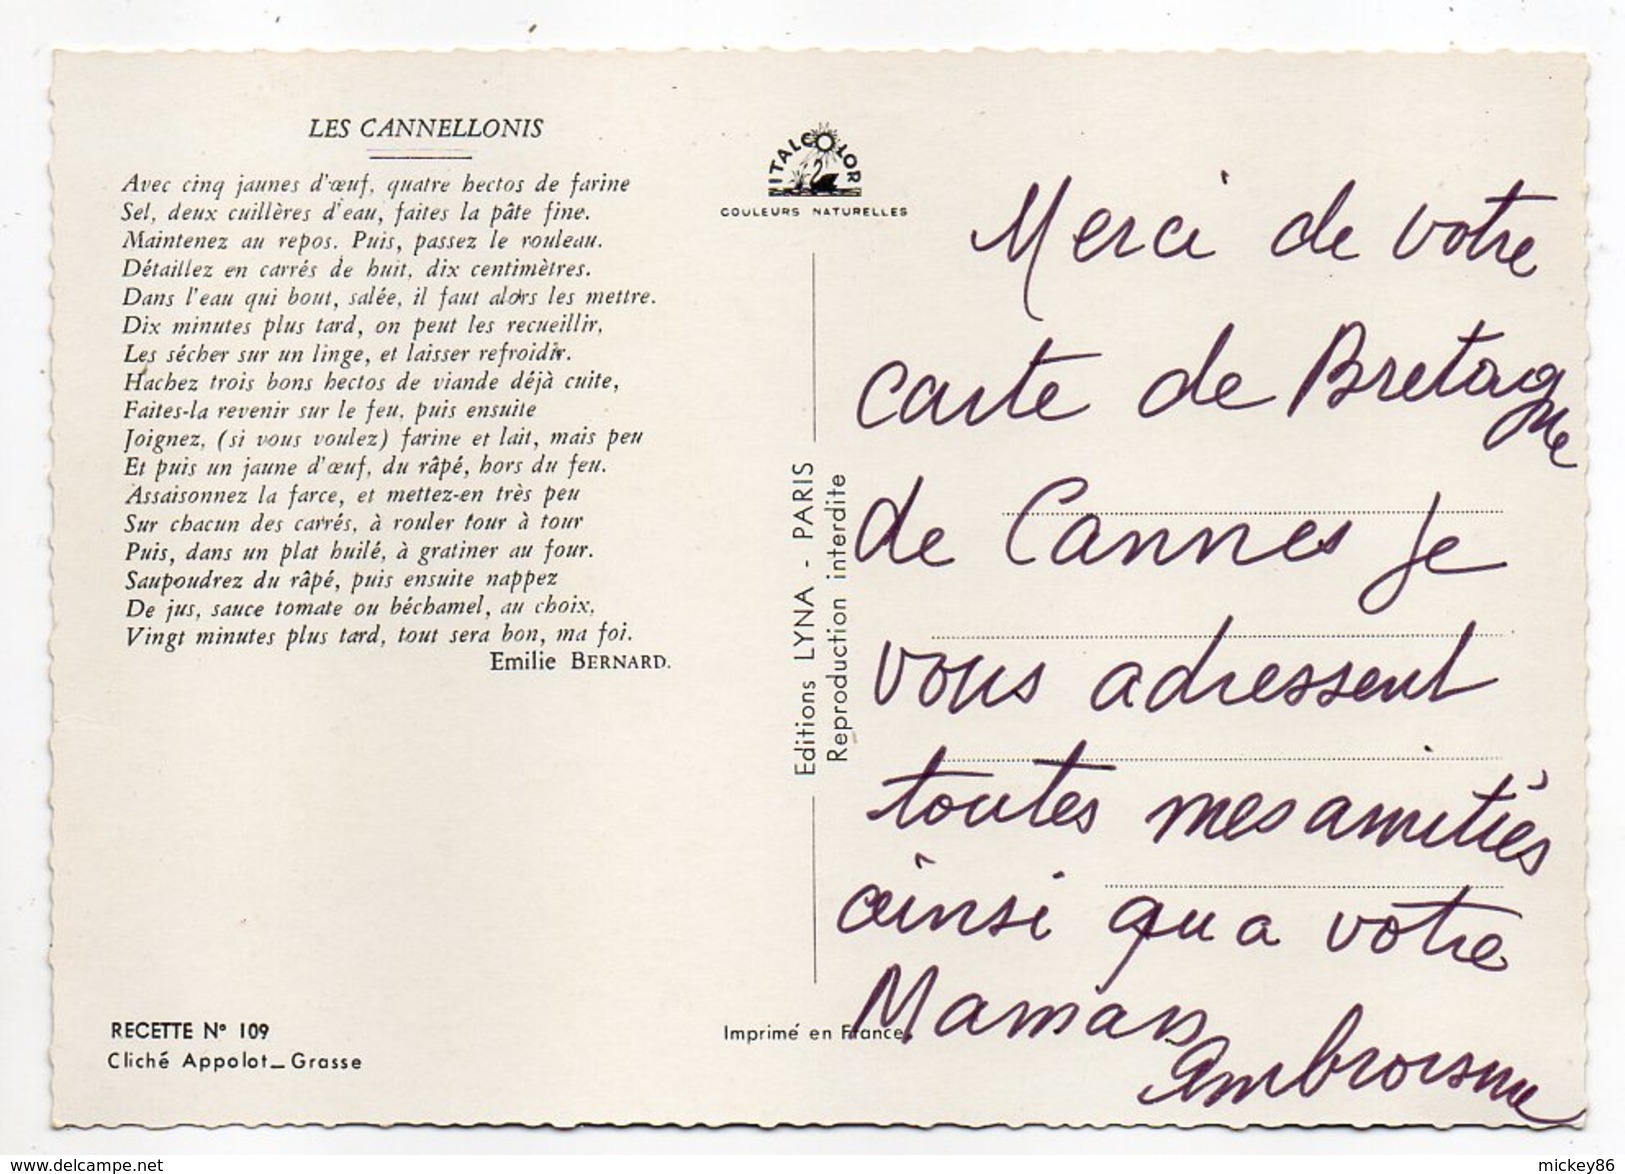 LES CANNELLONIS
Avec cinq jaunes d'œuf, quatre hectos de farine
Sel, deux cuillères d'eau, faites la pâte fine.
Maintenez au repos. Puis, passez le rouleau.
Détaillez en carrés de huit, dix centimètres.
Dans l'eau qui bout, salée, il faut alors les mettre.
Dix minutes plus tard, on peut les recueillir,
Les sécher sur un linge, et laisser refroidir.
Hachez trois bons hectos de viande déjà cuite,
Faites-la revenir sur le feu, puis ensuite
Joignez, (si vous voulez) farine et lait, mais peu
Et puis un jaune d'œuf, du râpé, hors du feu.
Assaisonnez la farce, et mettez-en très peu
Sur chacun des carrés, à rouler tour à tour
Puis, dans un plat huilé, à gratiner au four.
Saupoudrez du râpé, puis ensuite nappez
De jus, sauce tomate ou béchamel, au choix,
Vingt minutes plus tard, tout sera bon, ma foi.
Emilie BERNARD.
RECETTE N° 109
Cliché Appolot_Grasse
ITALCOLOR
COULEURS NATURELLES
Editions LYNA - PARIS
Reproduction interdite
Imprimé en France.
Merci de votre
carte de Bretagne
de Cannes je
vous adressent
toutes mes amitiés
ainsi qu a votre
Maman
Ambroisine
https://www.delcampe.net
mickey86